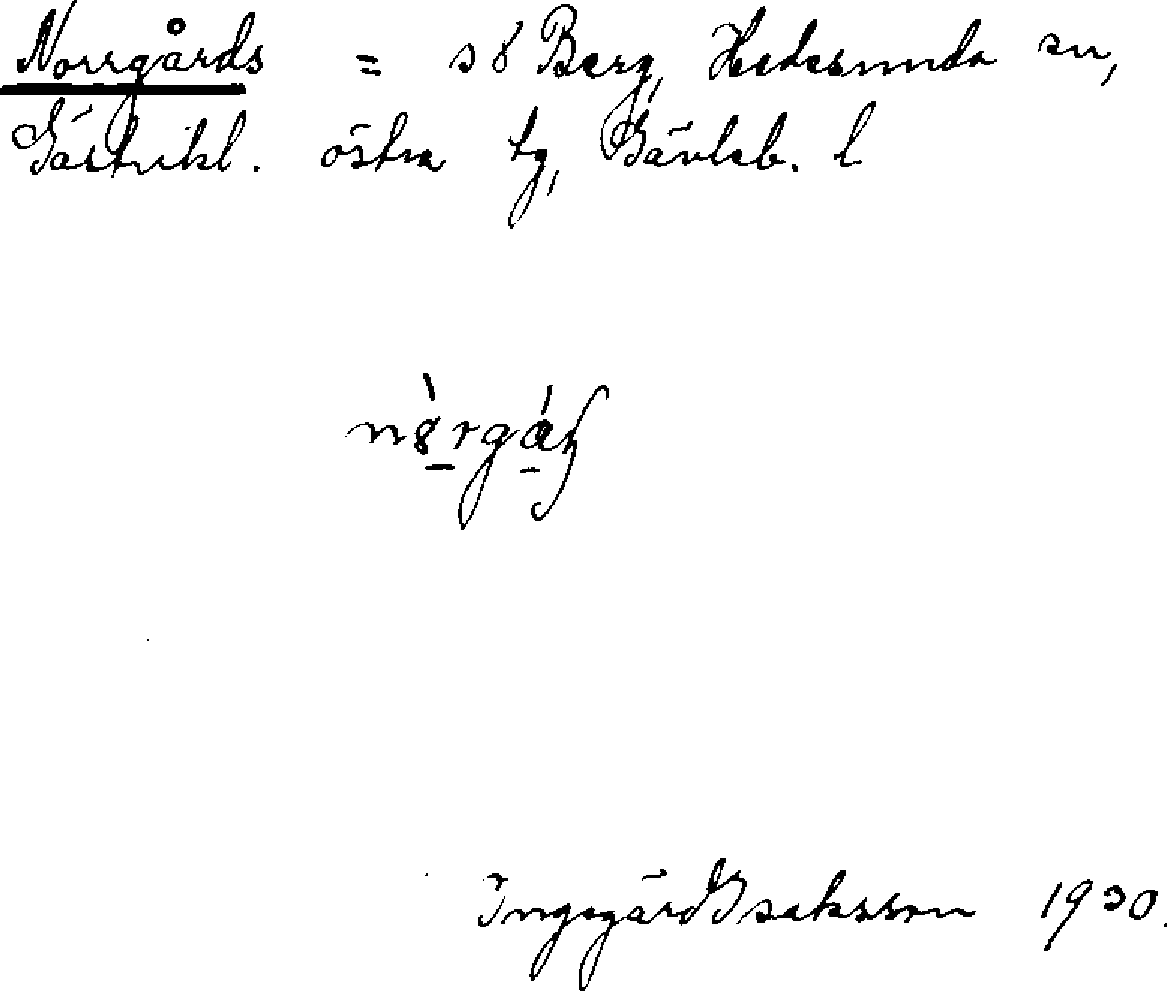 Norrgårds = s 8 Berg, Hedesunda sn,
Gästrikl. östra tg, Gävleb. l
Ingegärd Isaksson 1930.